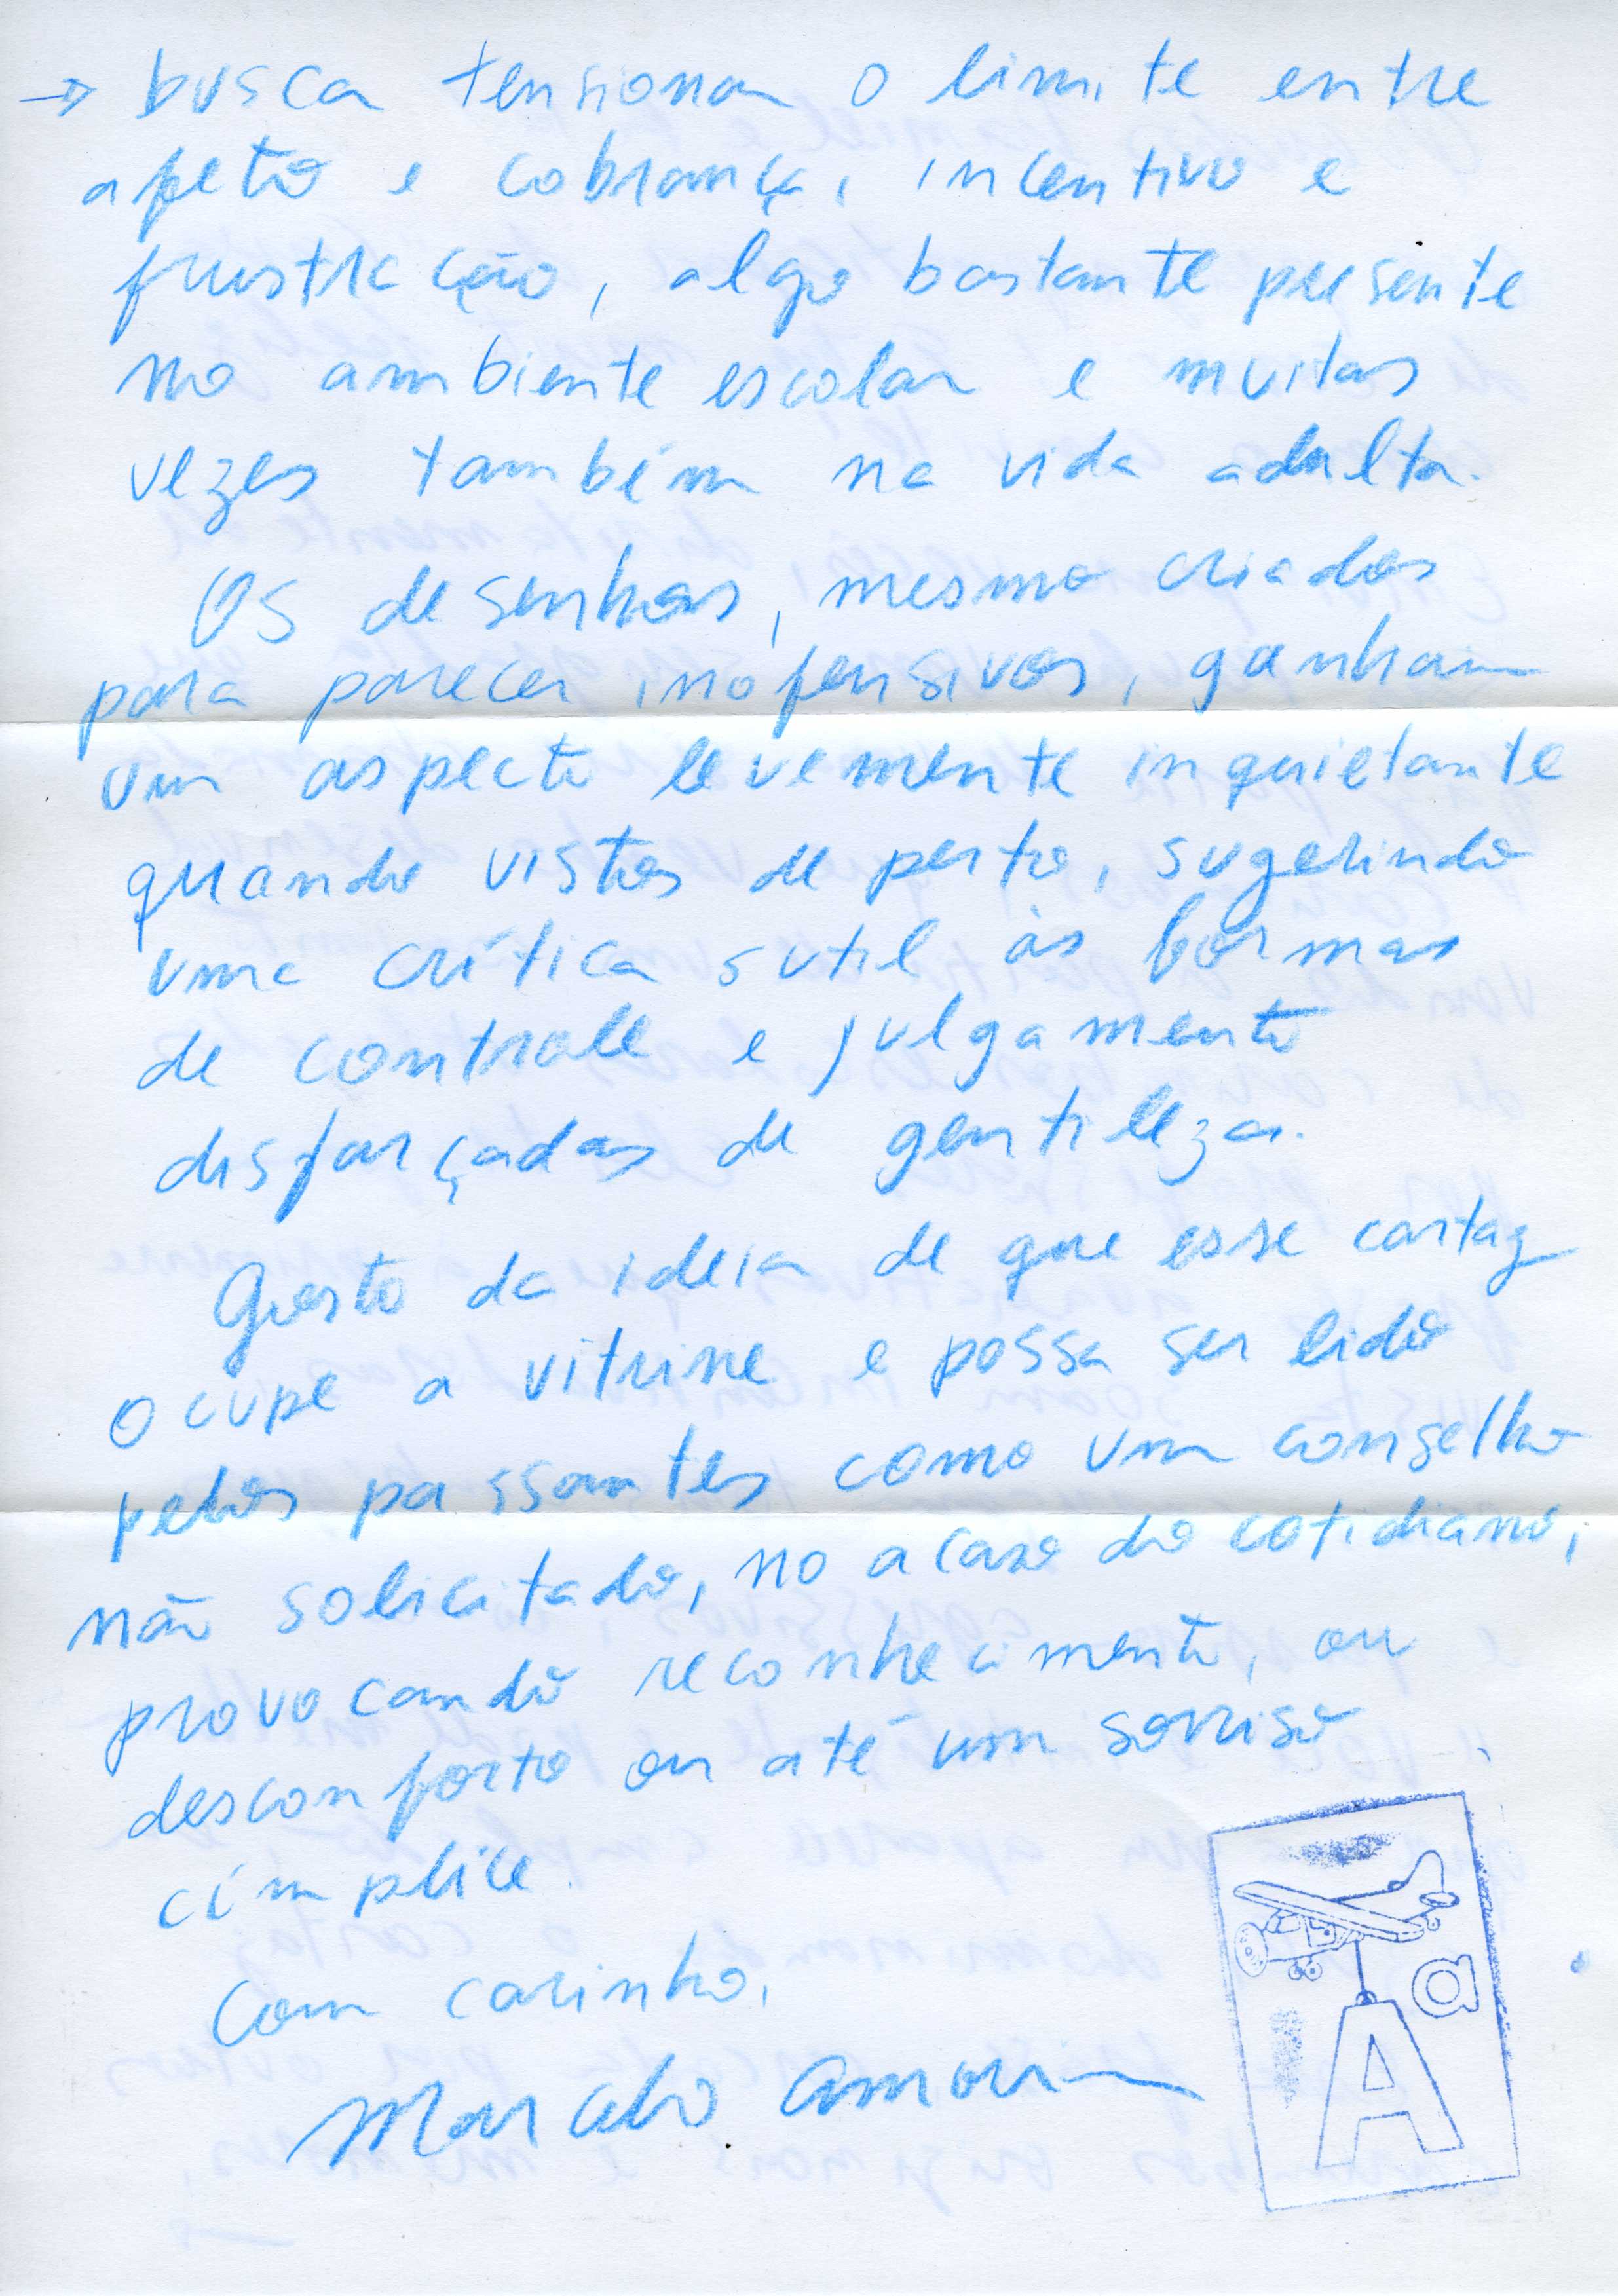 → busca tensionar o limite entre
afeto e cobrança, incentivo e
frustração, algo bastante presente
no ambiente escolar e muitas
vezes também na vida adulta.
Os desenhos, mesmo criados
para parecer inofensivos, ganham
um aspecto levemente inquietante
quando vistos de perto, sugerindo
uma crítica sutil às formas
de controle e julgamento
disfarçadas de gentileza.
Gosto da ideia de que esse cartaz
ocupe a vitrine e possa ser lido
pelos passantes como um conselho
não solicitado, no acaso do cotidiano,
provocando reconhecimento, ou
desconforto ou até um sorriso
címplice.
Com carinho,
Marcelo Amorim
a
A